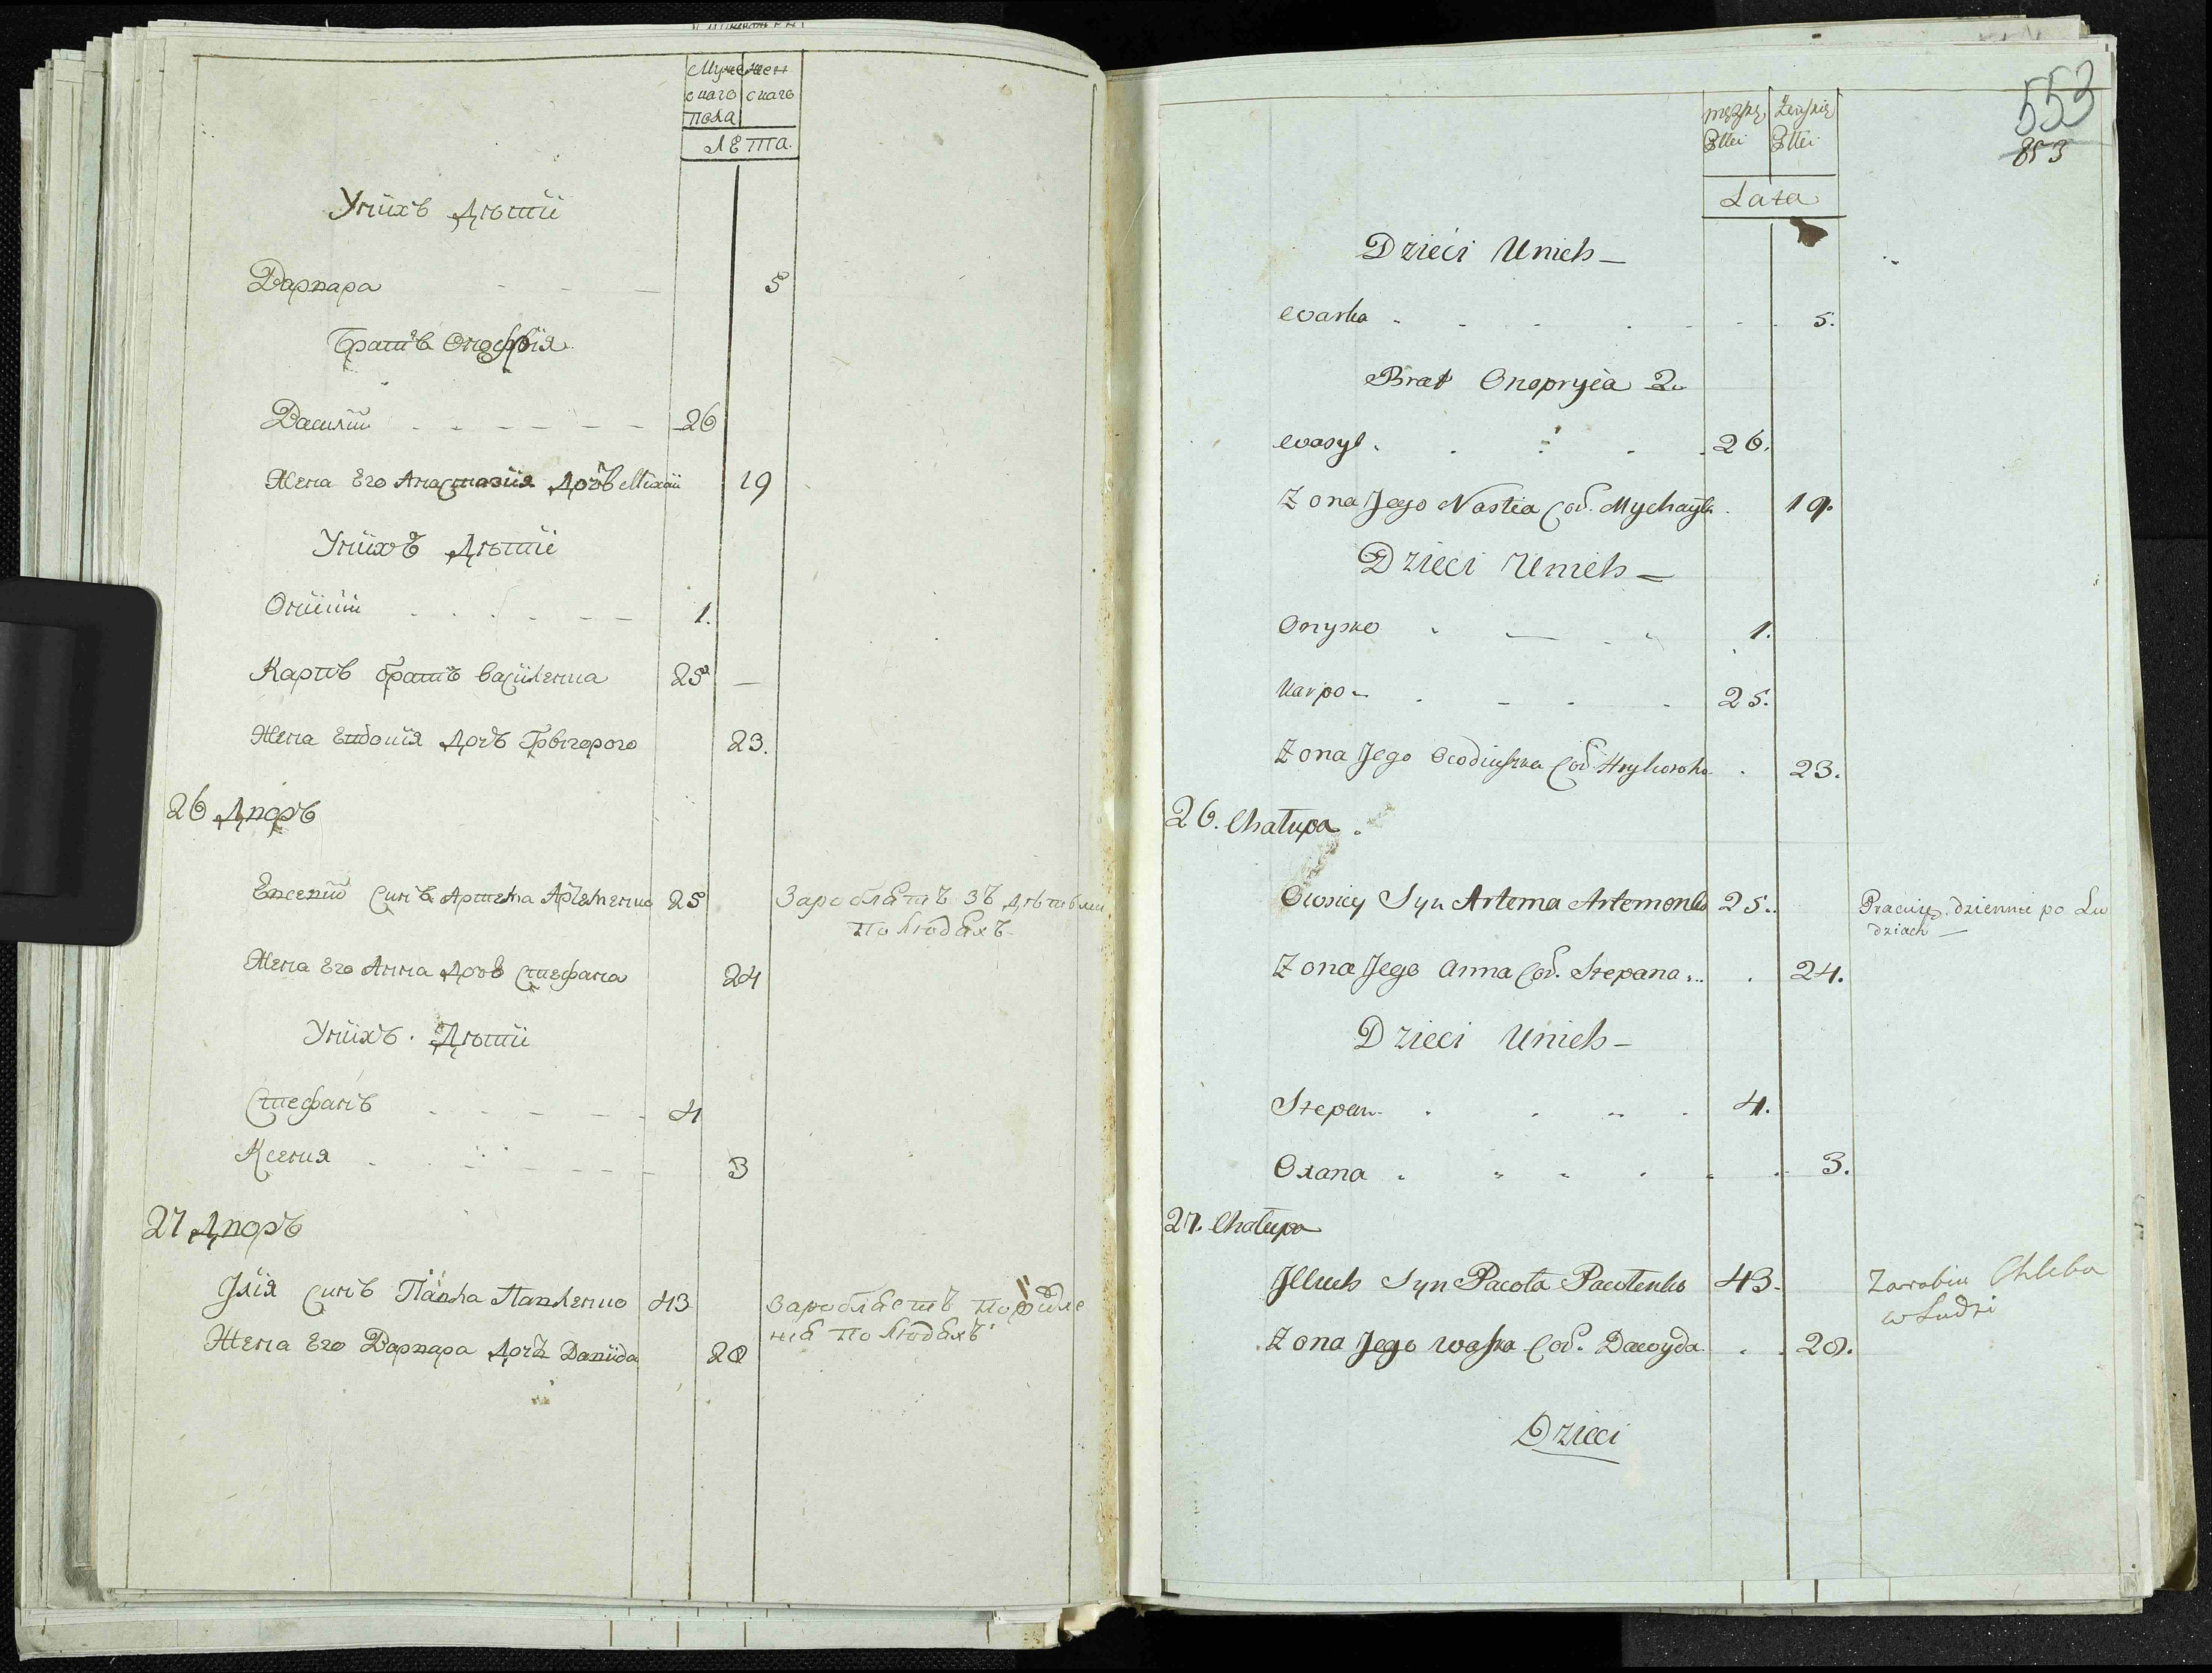 Муже жен
скаго скаго
пола
лЕта.
Унихъ Дѣти
Варвара 5
Братъ Онофрія
Василій 26
Жена Его Анастазія Дочъ Михай 19
Унихъ Дѣти
Онисій 1.
Карпъ братъ василенка 25 —
Жена Евдокія Дочъ Григорого 23.
26 Дворъ
Евсевій Синъ Артема Артеменко 25
Заробляетъ зъ дѣтьми
по людяхъ
Жена Его Анна Дочъ Стефана 24
Унихъ Дѣти
Стефанъ 4
Ксения 3
27 Дворъ
Ілія Синъ Павла Павленко 43
Заробляетъ
по людяхъ
Жена Его Варвара Дочъ Давида 28
553
853
męzkę Żeńskię
Płci Płci
Lata
Dzieći Unich —
Warka 5.
Brat Onopryia 2.
Wasyl 26.
Zona Jego Nastia Cor. Mychayła 19.
Dzieci Unich —
Onysko 1.
Karpo 25.
Zona Jego Owdiuszka Cor Hryhoroho 23.
26. Chałupa.
Owsiey Syn Artema Artemenko 25.
Pracuię dziennie po Lu
dziach —
Zona Jego Anna Cor. Stepana 24.
Dzieci Unich —
Stepan 4.
Oxana 3.
27. Chałupa
Jlluch Syn Pawła Pawlenko 43.
Zarabia Chleba
w Ludzi
Zona Jego Waska Cor. Dawyda 28.
Dzieci